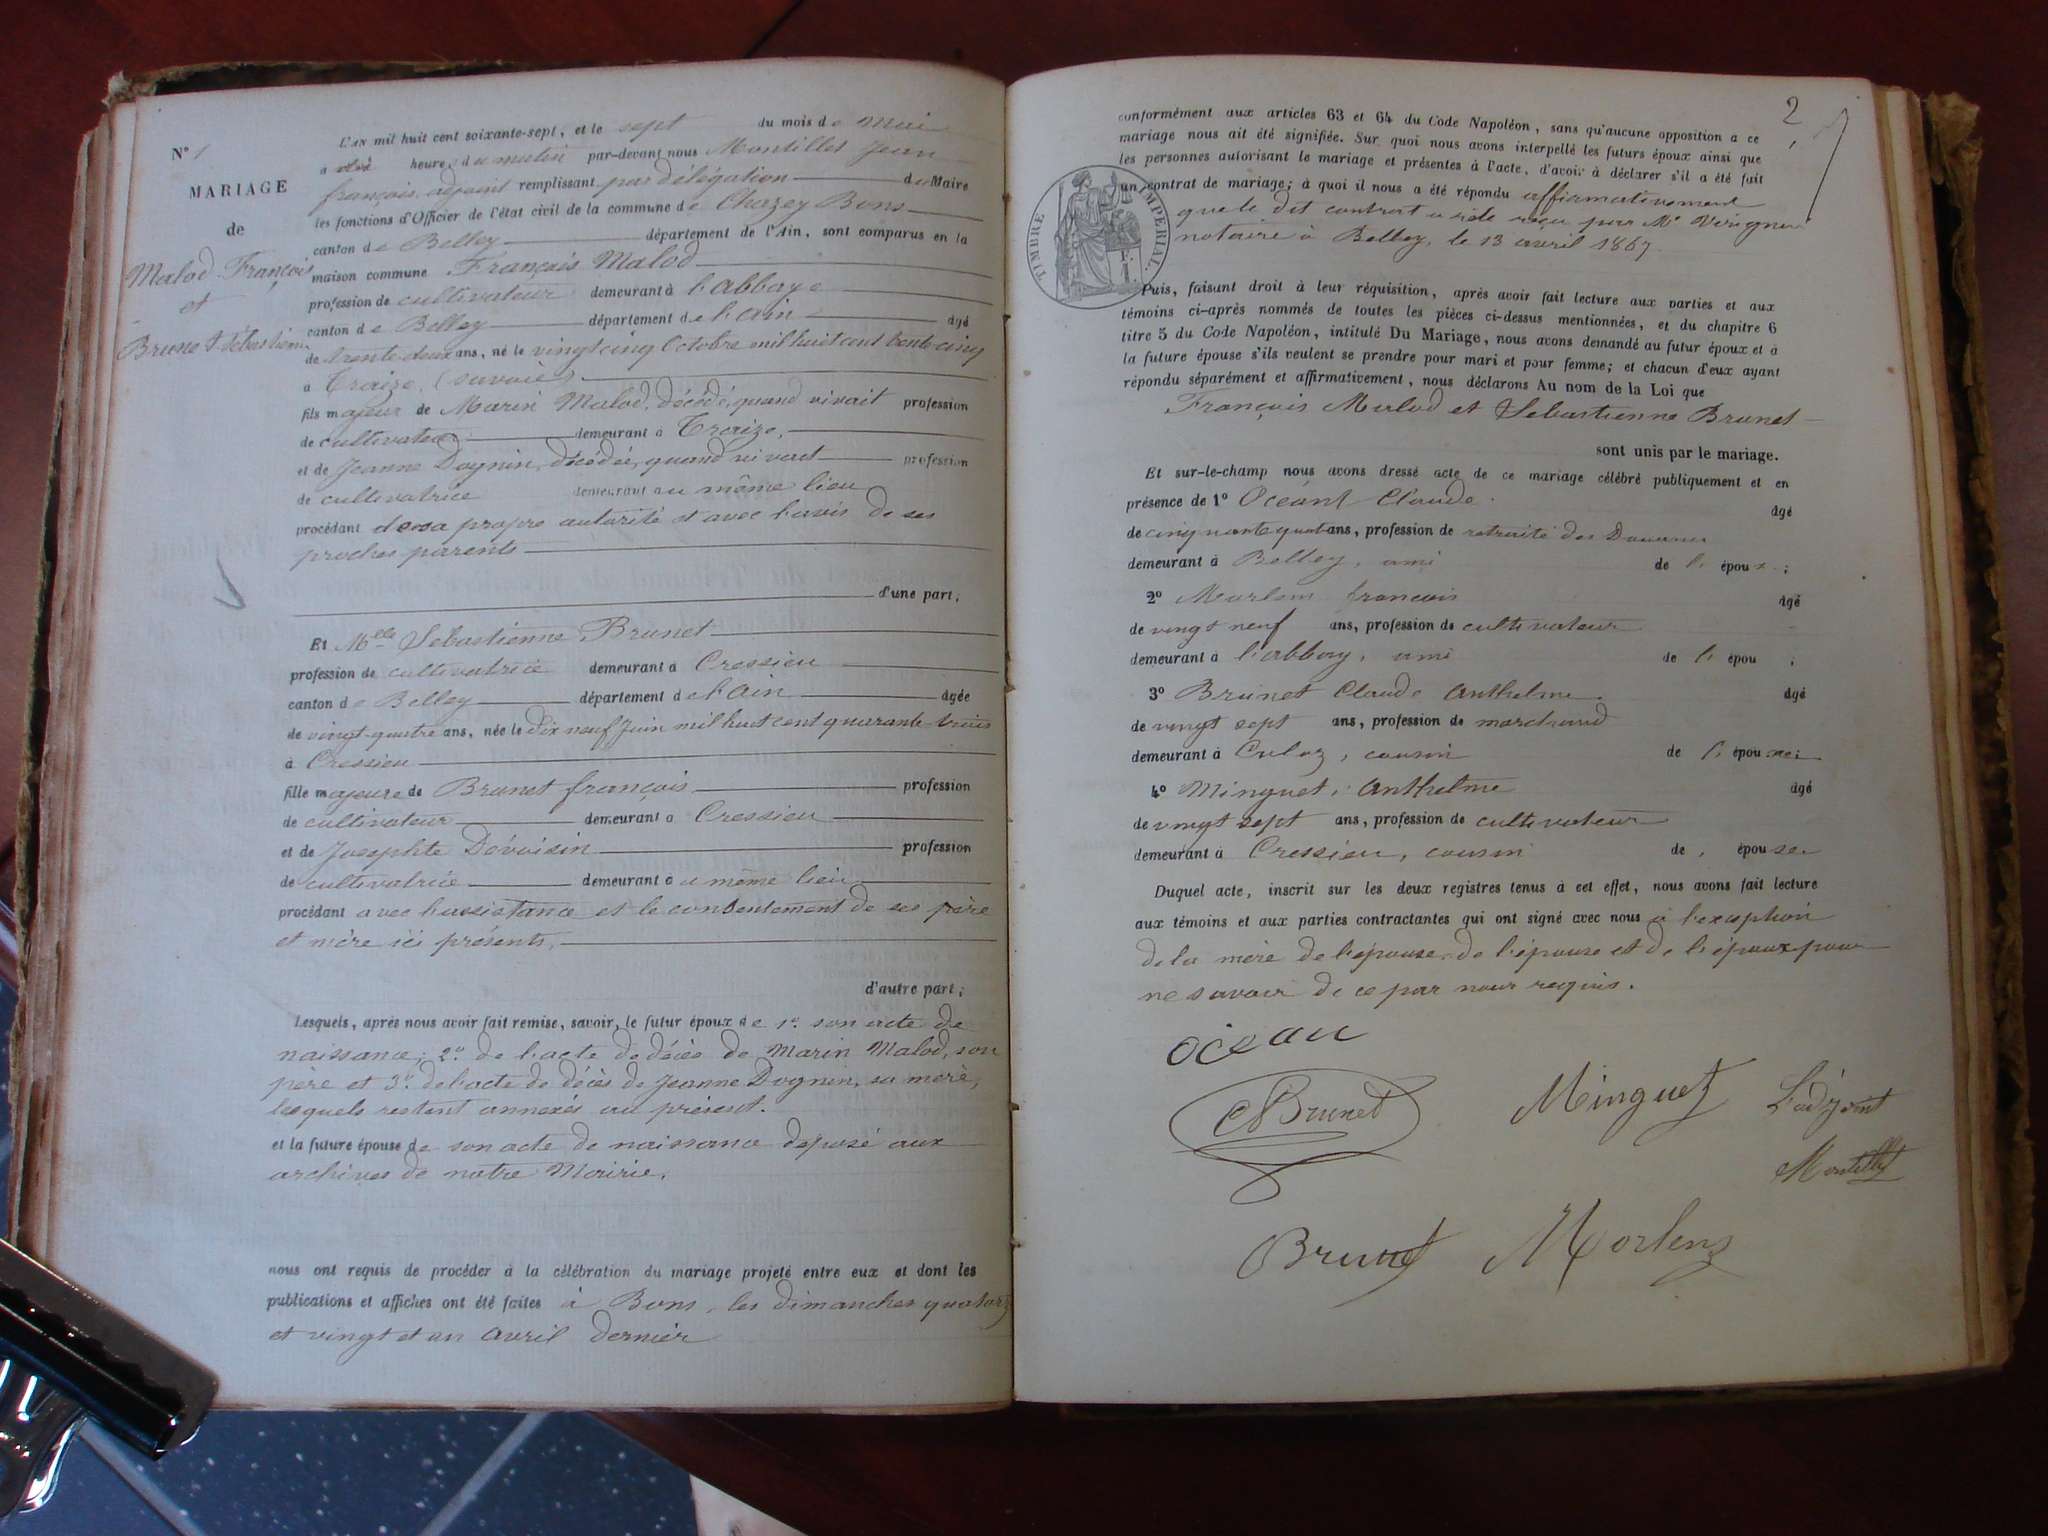 N° 1
MARIAGE
de
Malod François
et
Brunet Sébastienne
L'AN mil huit cent soixante-sept, et le sept du mois de Mai
à heures du matin par-devant nous Montillet Jean
françois, adjoint remplissant par délégation du Maire
les fonctions d'Officier de l'état civil de la commune de Chazey Bons
canton de Belley département de l'Ain, sont comparus en la
maison commune François Malod
profession de cultivateur demeurant à l'abbaye
canton de Belley département de l'ain âgé
de trente deux ans, né le vingt cinq Octobre mil huit cent trente cinq
à Traize, (savoie)
fils majeur de Marin Malod, décédé, quand vivait profession
de cultivateur demeurant à Traize,
et de Jeanne Dognin, décédée, quand vivait profession
de cultivatrice demeurant au même lieu
procédant de sa propre autorité et avec l'avis de ses
proches parents
d'une part;
Et Melle Sébastienne Brunet
profession de cultivatrice demeurant à Cressieu
canton de Belley département de l'ain âgée
de vingt-quatre ans, née le dix neuf Juin mil huit cent quarante-trois
à Cressieu
fille majeure de Brunet françois profession
de cultivateur demeurant à Cressieu
et de Josephte Dévoisin profession
de cultivatrice demeurant au même lieu
procédant avec l'assistance et le consentement de ses père
et mère ici présents,
d'autre part;
Lesquels, après nous avoir fait remise, savoir, le futur époux de 1° son acte de
naissance; 2° de l'acte de décès de Marin Malod, son
père et 3° de l'acte de décès de Jeanne Dognin, sa mère,
lesquels restent annexés au présent.
et la future épouse de son acte de naissance déposé aux
archives de notre Mairie.
nous ont requis de procéder à la célébration du mariage projeté entre eux et dont les
publications et affiches ont été faites à Bons, les dimanches quatorze
et vingt et un avril dernier
2
conformément aux articles 63 et 64 du Code Napoléon, sans qu'aucune opposition a ce
mariage nous ait été signifiée. Sur quoi nous avons interpellé les futurs époux ainsi que
les personnes autorisant le mariage et présentes à l'acte, d'avoir à déclarer s'il a été fait
un contrat de mariage; à quoi il nous a été répondu affirmativement
que le dit contrat a été reçu par Me
notaire à Belley, le 13 avril 1867.
TIMBRE IMPERIAL.
Puis, faisant droit à leur réquisition, après avoir fait lecture aux parties et aux
témoins ci-après nommés de toutes les pièces ci-dessus mentionnées, et du chapitre 6
titre 5 du Code Napoléon, intitulé Du Mariage, nous avons demandé au futur époux et à
la future épouse s'ils veulent se prendre pour mari et pour femme; et chacun d'eux ayant
répondu séparément et affirmativement, nous déclarons Au nom de la Loi que
François Malod et Sébastienne Brunet
sont unis par le mariage.
Et sur-le-champ nous avons dressé acte de ce mariage célébré publiquement et en
présence de 1° Océant Claude. âgé
de cinquante quat ans, profession de retraité des Douanes
demeurant à Belley, ami de l' époux;
2° Morlens françois âgé
de vingt neuf ans, profession de cultivateur
demeurant à l'abbaye, ami de l' épou ;
3° Brunet Claude Anthelme. âgé
de vingt sept ans, profession de marchand
demeurant à Culoz, cousin de l' épouse;
4° Minguet, Anthelme âgé
de vingt sept ans, profession de cultivateur
demeurant à Cressieu, cousin de épouse
Duquel acte, inscrit sur les deux registres tenus à cet effet, nous avons fait lecture
aux témoins et aux parties contractantes qui ont signé avec nous à l'exception
de la mère de l'épouse, de l'épouse et de l'époux pour
ne savoir de ce par nous requis.
oceau
Brunet Minguet L'adjoint
Montillet
Brunet Morlens